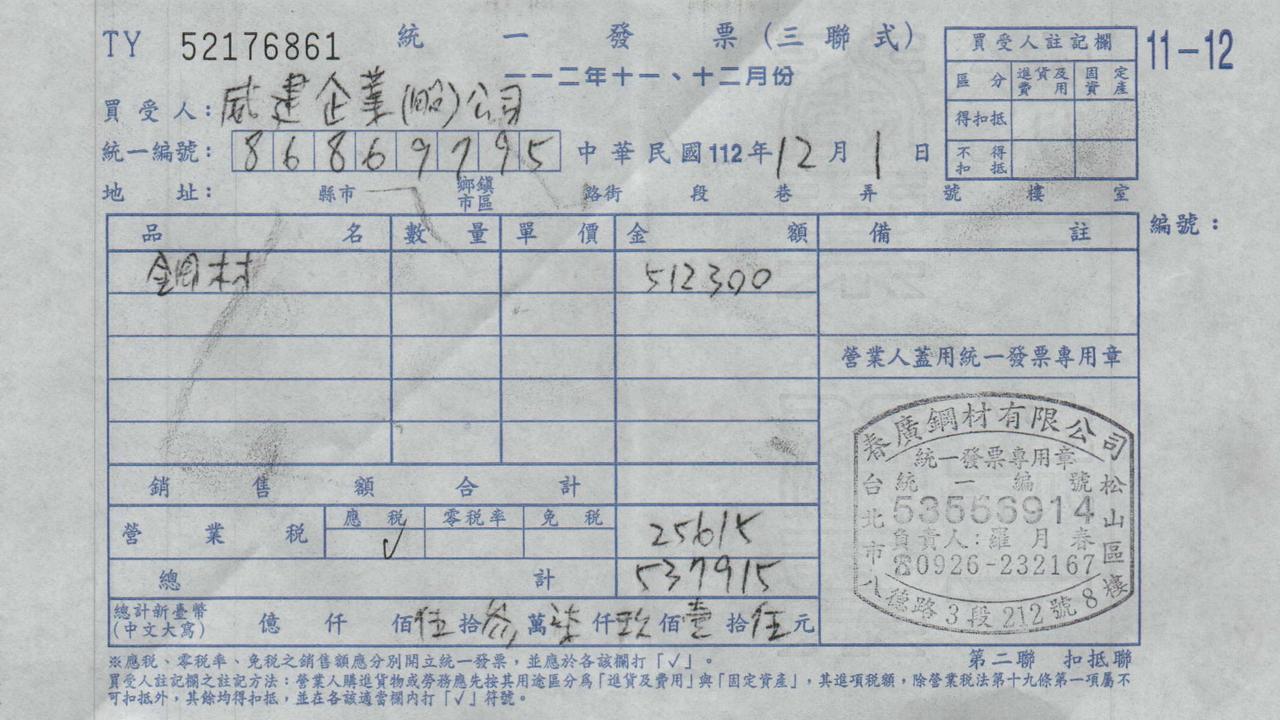 TY 52176861 統一發票(三聯式)
一一二年十一、十二月份
11-12
買受人註記欄
區分 進貨及費用 固定資產
得扣抵
不得扣抵
買受人:威建企業(股)公司
統一編號:86869795 中華民國112年12月1日
地址: 縣市 鄉鎮市區 路街 段 巷 弄 號 樓 室
編號:
品名 數量 單價 金額 備註
鋼材 512300
營業人蓋用統一發票專用章
銷售額合計
營業稅 應稅 零稅率 免稅 25615
✓
總計 537915
總計新臺幣(中文大寫) 億 仟 佰伍拾參萬柒仟玖佰壹拾伍元
春廣鋼材有限公司
統一發票專用章
統一編號
53556914
負責人:羅月春
0926-232167
台北市松山區八德路3段212號8樓
第二聯 扣抵聯
※應稅、零稅率、免稅之銷售額應分別開立統一發票,並應於各該欄打「✓」。
買受人註記欄之註記方法:營業人購進貨物或勞務應先按其用途區分為「進貨及費用」與「固定資產」,其進項稅額,除營業稅法第十九條第一項屬不
可扣抵外,其餘均得扣抵,並在各該適當欄內打「✓」符號。